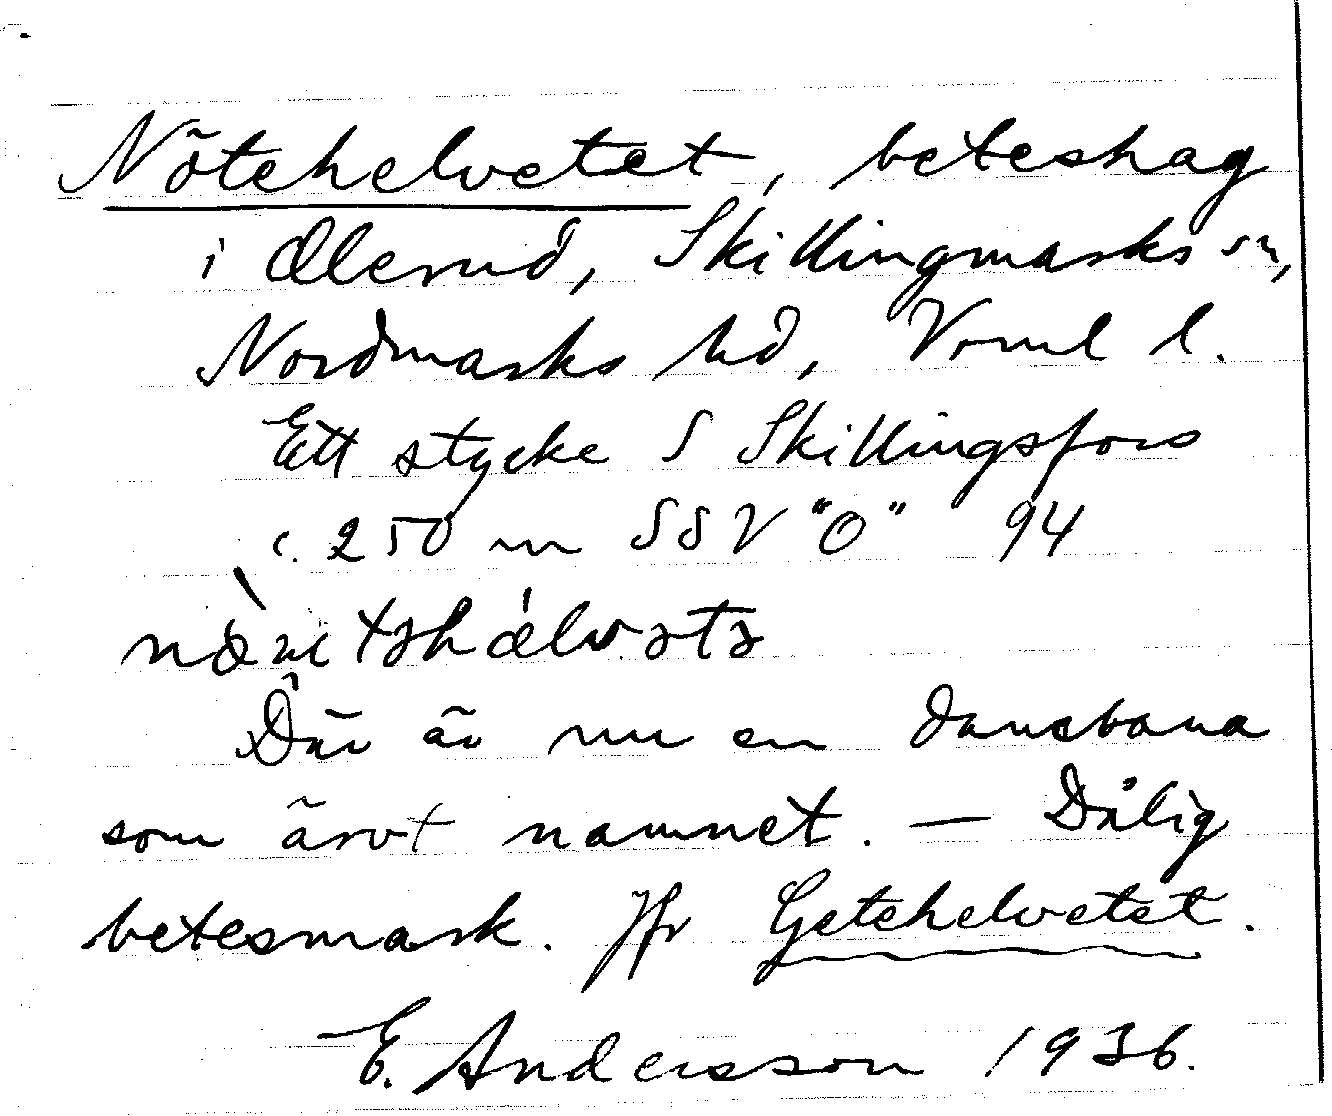 Nötehelvetet, beteshag
i Ölerud, Skillingmarks sn,
Nordmarks hd, Värml l.
Ett stycke S Skillingsfors
c. 250 m SSV "O" 94
Där är nu en dansbana
som ärvt namnet. — Dålig
betesmark. Jfr Getehelvetet.
E. Andersson 1936.